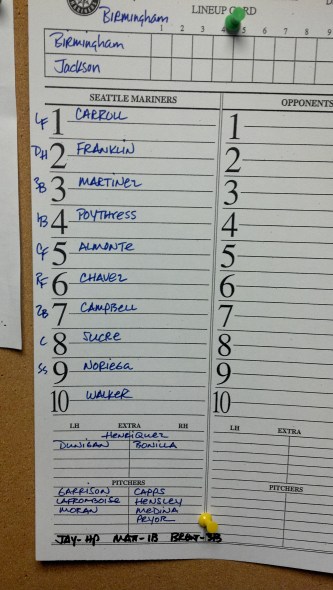 Birmingham LINEUP CARD
1 2 3 4 5 6 7 8 9
Birmingham
Jackson
SEATTLE MARINERS OPPONENTS
LF 1 CARROLL 1
DH 2 FRANKLIN 2
3B 3 MARTINEZ 3
1B 4 POYTHRESS 4
CF 5 ALMONTE 5
RF 6 CHAVEZ 6
2B 7 CAMPBELL 7
C 8 SUCRE 8
SS 9 NORIEGA 9
10 WALKER 10
LH EXTRA RH LH EXTRA
HENRIQUEZ
DUNIGAN BONILLA
PITCHERS PITCHERS
GARRISON CAPPS
LAFROMBOISE HENSLEY
MORAN MEDINA
PRYOR
JAY-HP MATT-1B BRENT-3B